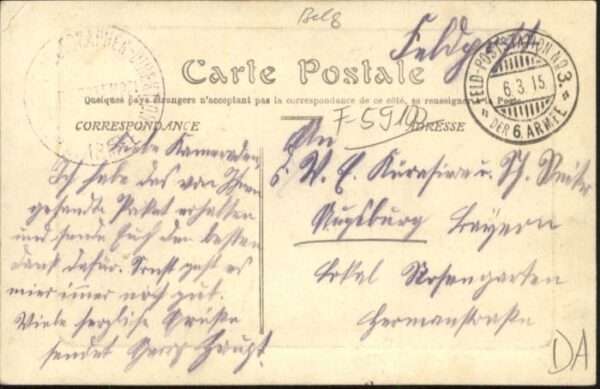 Belg
Feldpost
Carte Postale
Quelques pays étrangers n'acceptant pas la correspondance de ce côté, se renseigner
Poste
CORRESPONDANCE
ADRESSE
FELD-POSTSTATION No 3.
6.3.15
DER 6. ARMEE
F-5919
Liebe Kameraden,
Ich habe das von Ihnen
gesandte Paket erhalten
und sende Euch den besten
Dank dafür. Sonst geht es
mir immer noch gut.
Viele herzliche Grüße
sendet Georg Haupt.
An
d. V. f. Kürasiere u. Sch. Reiter
Augsburg Bayern
Lokal Rosengarten
Hermanstraße
DA